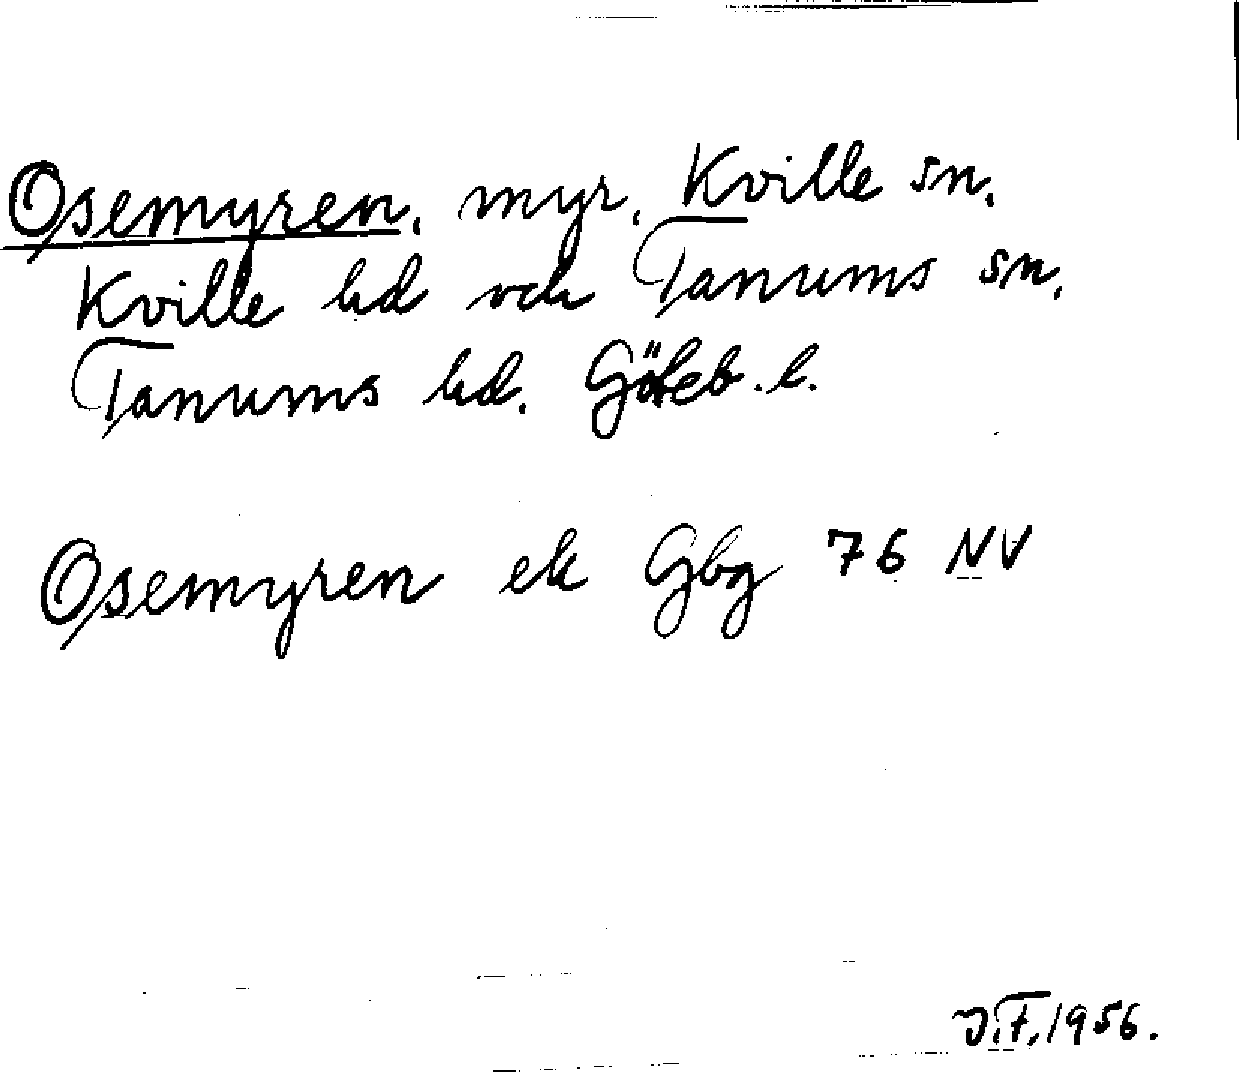 Osemyren. myr. Kville sn.
Kville hd och Tanums sn.
Tanums hd. Göteb. l.
Osemyren ek Gbg 76 NV
J.F. 1956.